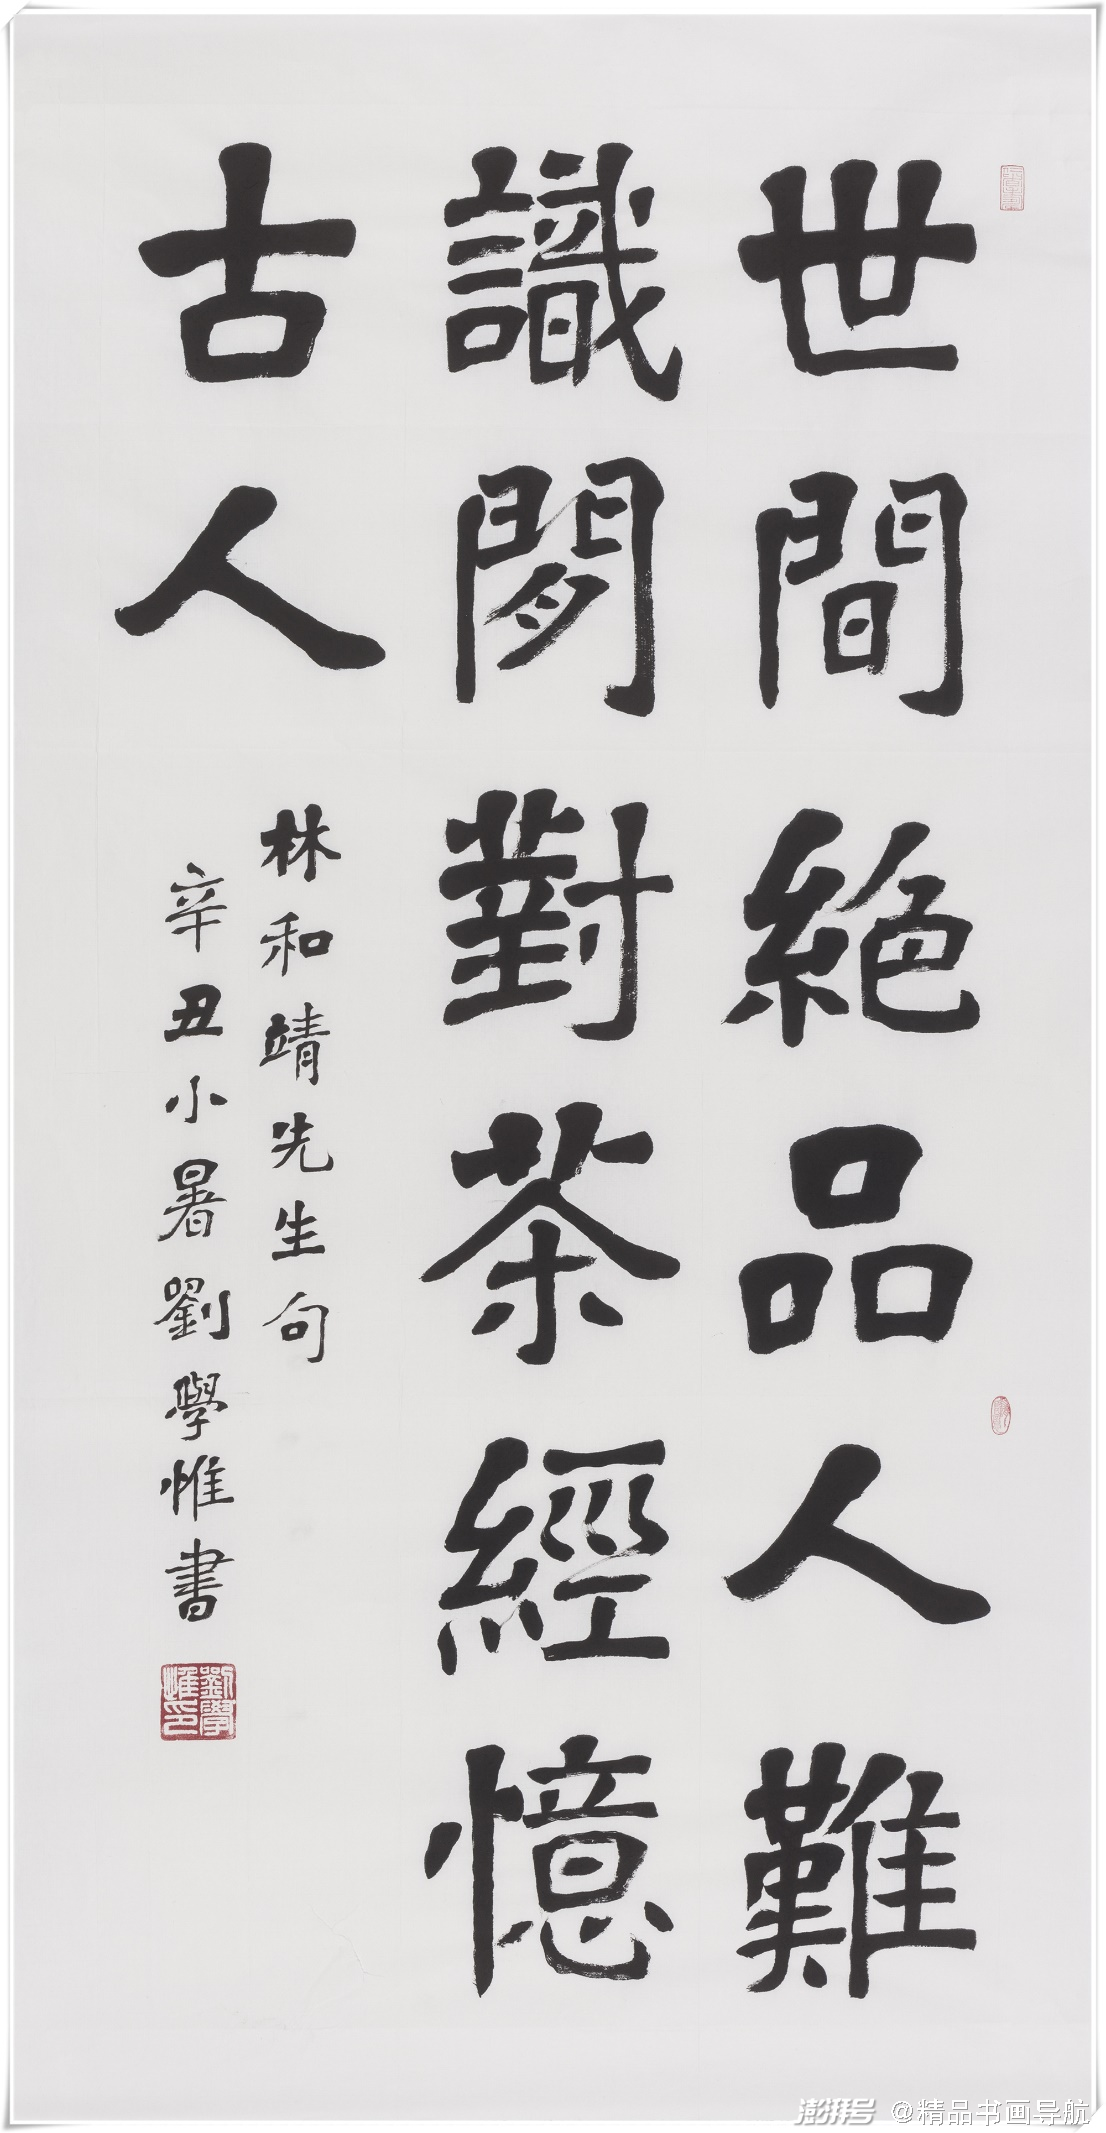 世間絕品人難
識閒對茶經憶
古人
林和靖先生句
辛丑小暑劉學惟書
劉學惟印
澎湃号 @精品书画导航